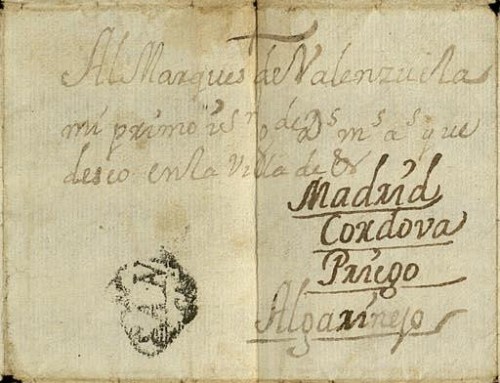 Al Marques de Valenzuela
mi primo s.r g.de D.s m.s a.s que
deseo en la Villa de &
Madrid
Cordova
Priego
Algarinejo